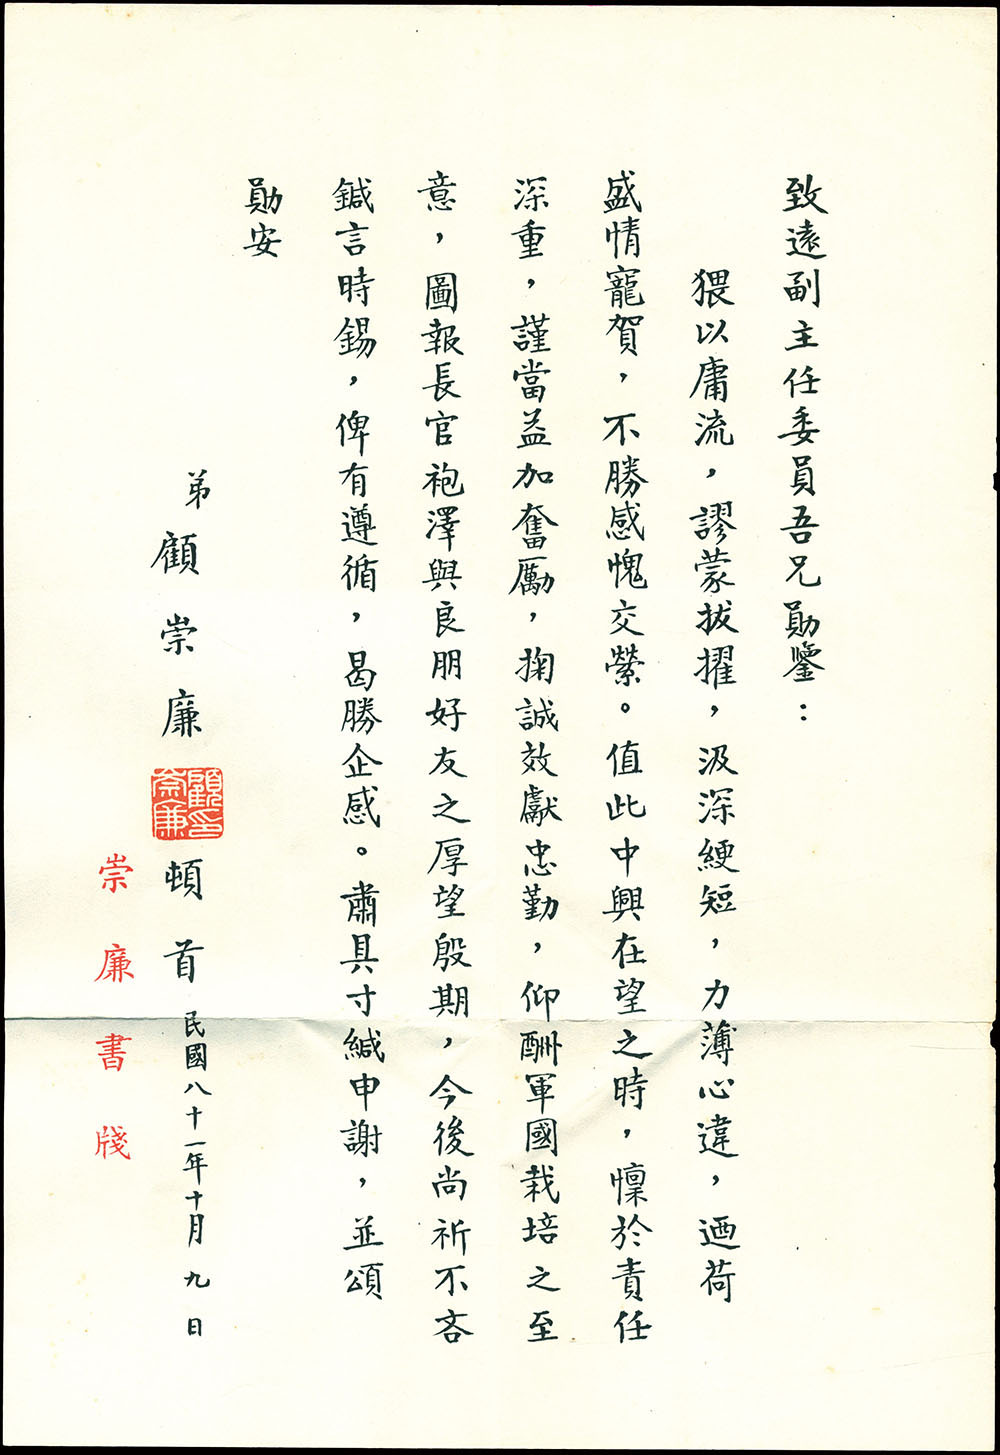 致遠副主任委員吾兄勛鑒：
猥以庸流，謬蒙拔擢，汲深綆短，力薄心違，迺荷
盛情寵賀，不勝感愧交縈。值此中興在望之時，懍於責任
深重，謹當益加奮勵，掬誠效獻忠勤，仰酬軍國栽培之至
意，圖報長官袍澤與良朋好友之厚望殷期，今後尚祈不吝
鍼言時錫，俾有遵循，曷勝企感。肅具寸緘申謝，並頌
勛安
弟 顧崇廉 顧崇廉印 頓首 民國八十一年十月九日
崇廉書牋